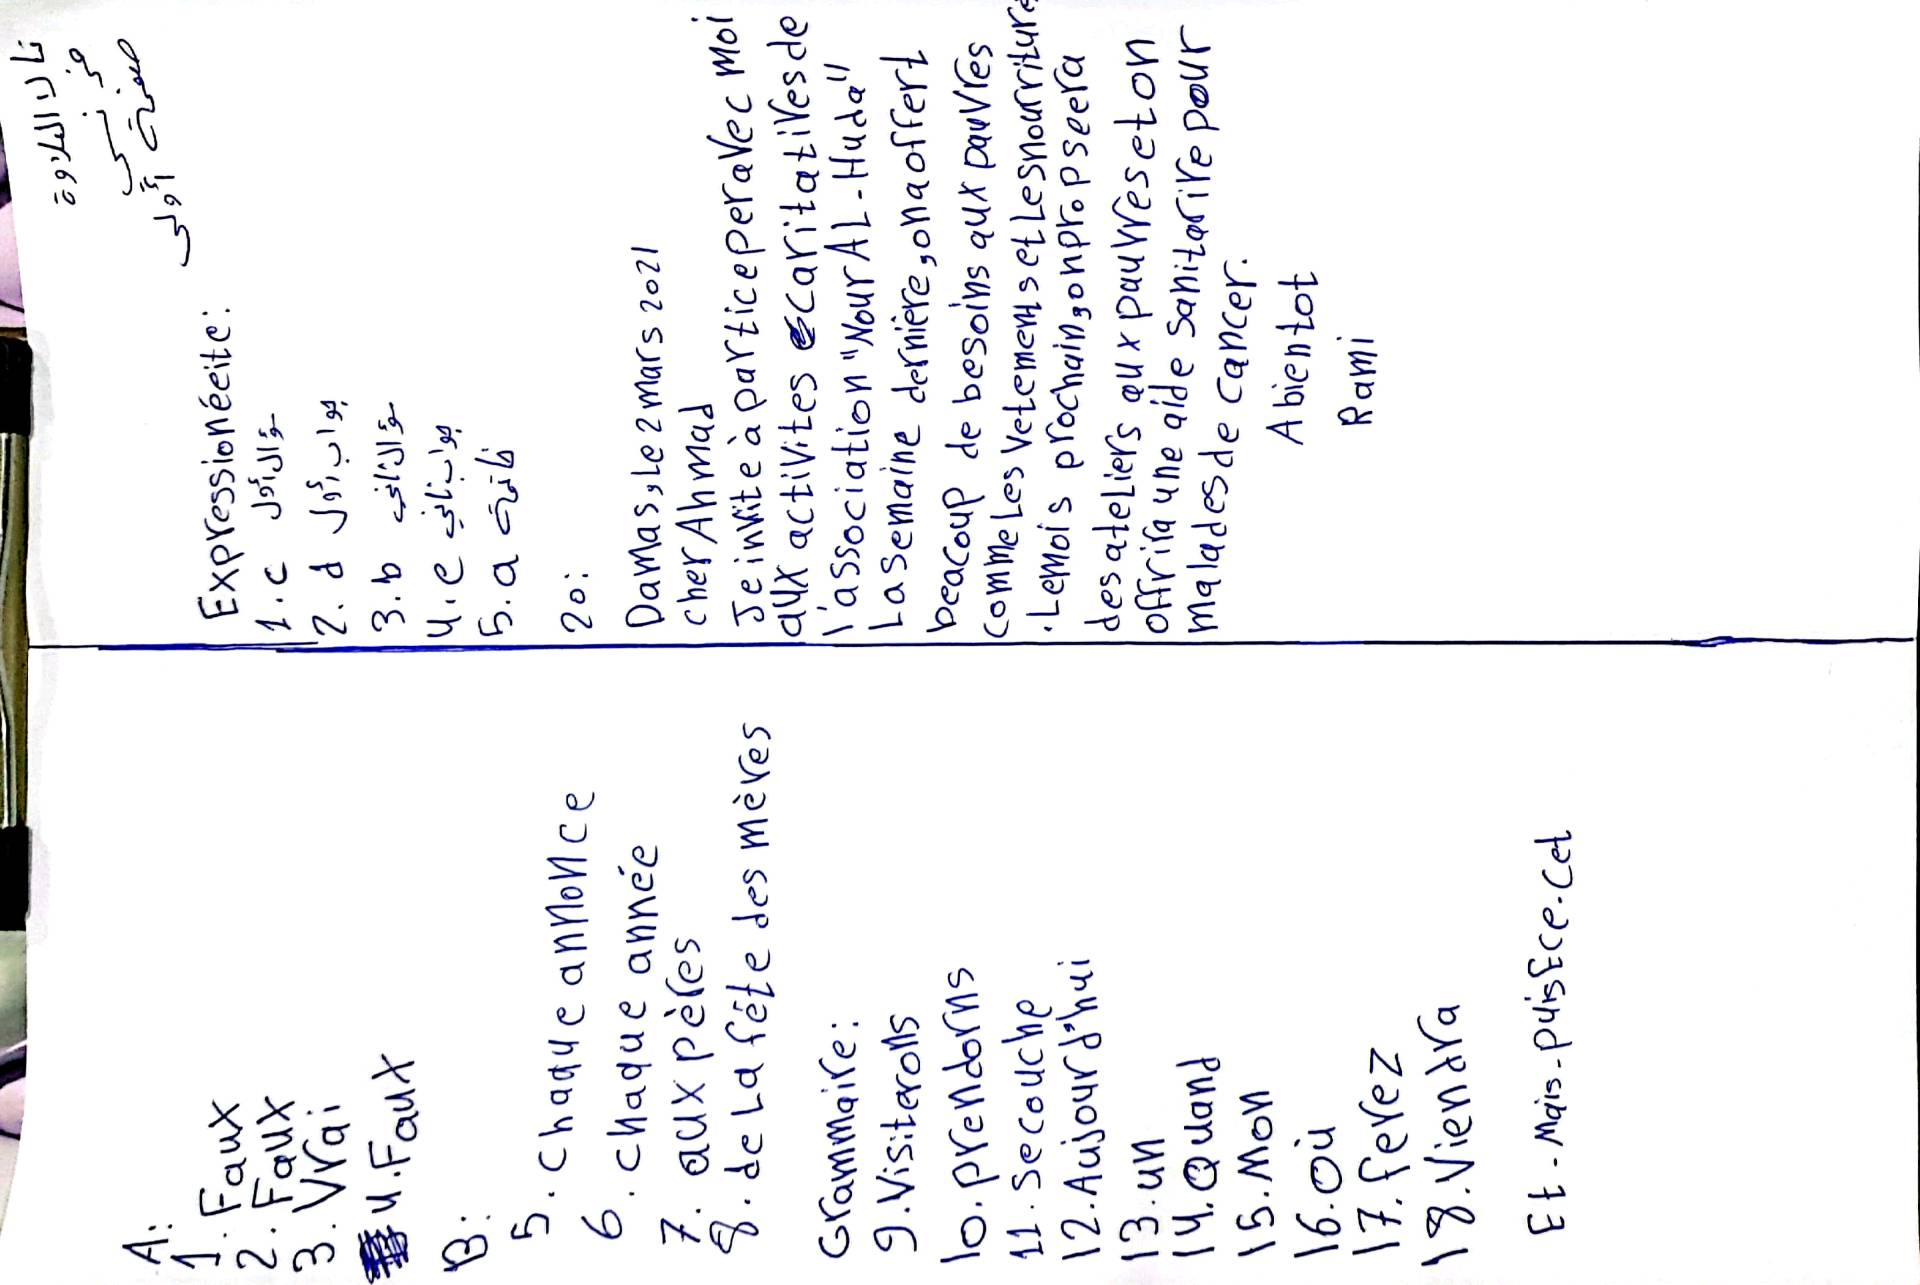 A:
1. Faux
2. Faux
3. Vrai
4. Faux
B:
5. chaque annonce
6. chaque année
7. aux pères
8. de La féte des mères
Grammaire:
9. Visiterons
10. prendorns
11. Se couche
12. Aujourd'hui
13. un
14. Quand
15. Mon
16. Où
17. ferez
18. Viendra
Et - Mais - puis
ce. cet
Expression éeite:
1. c سؤال أول
2. d جواب أول
3. b سؤال ثاني
4. e جواب ثاني
5. a ثابتة
20:
Damas, Le 2 mars 2021
cher Ahmad
Je invite à particeper avec moi
aux activites caritatives de
l'association "Nour AL-Huda"
La semaine dernière, on a offert
beacoup de besoins aux pauvres
comme Les vetements et Les nourritures
. Le mois prochain, on propseera
des ateliers aux pauvres et on
offrira une aide sanitarire pour
malades de cancer.
A bientot
Rami